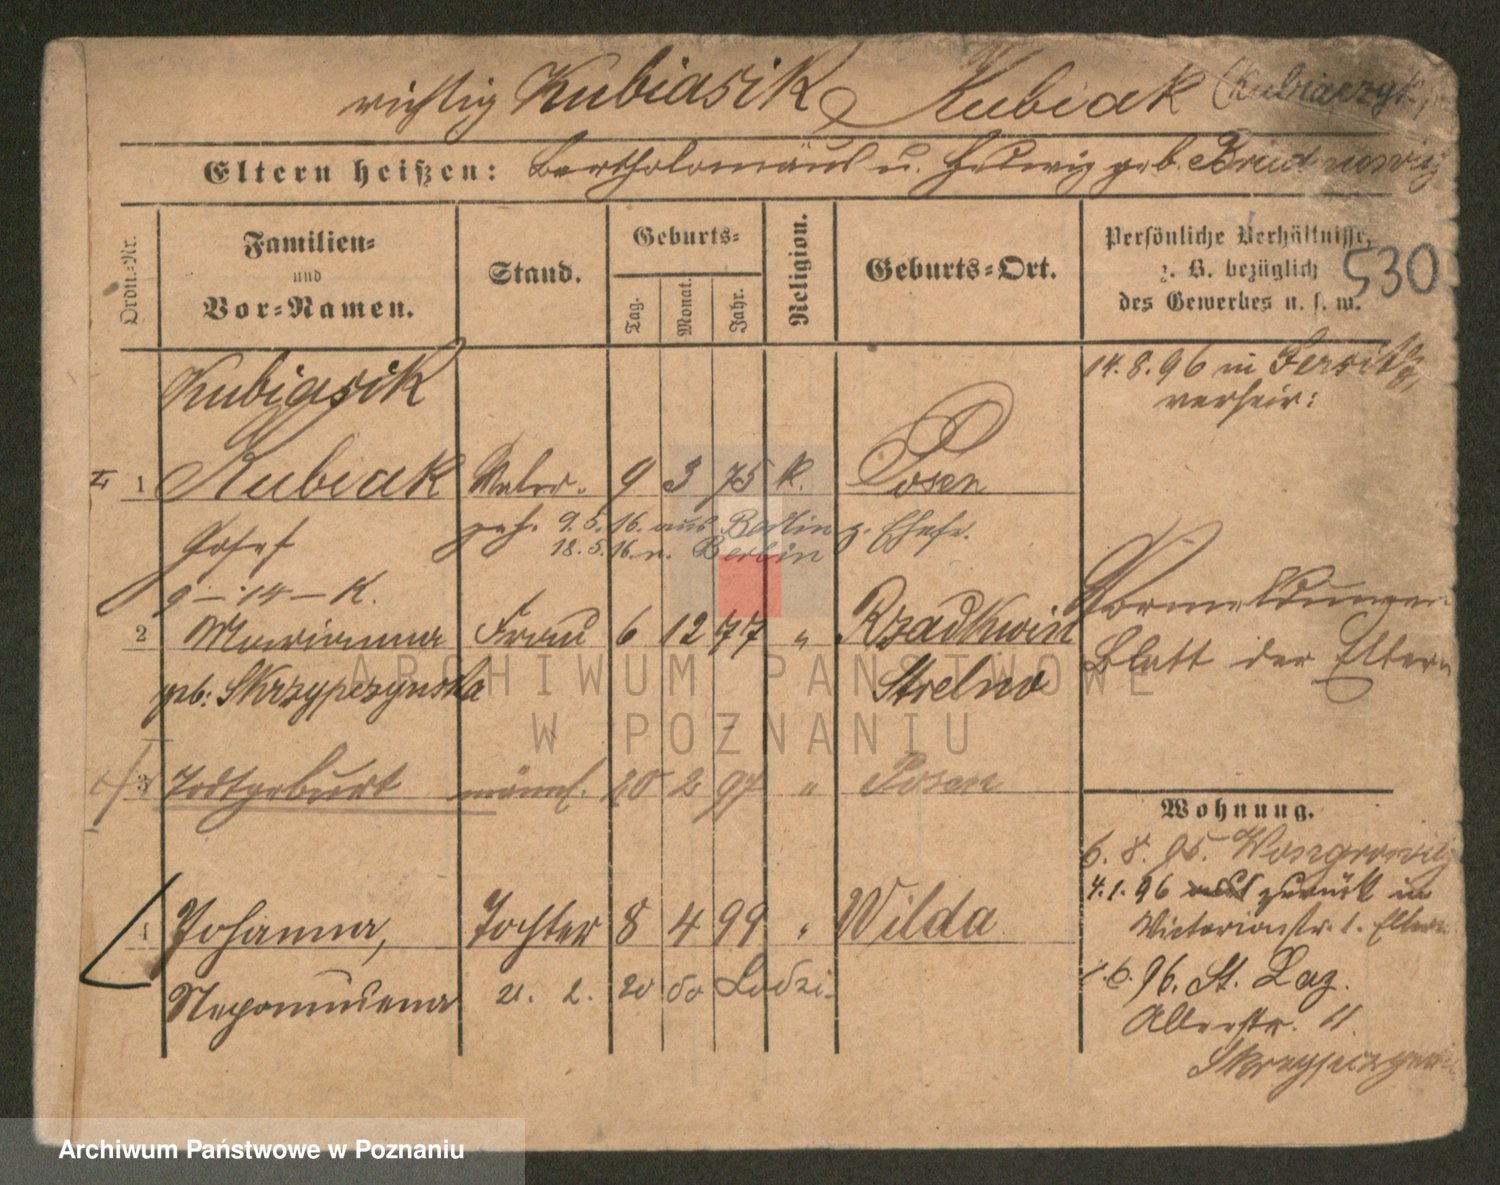 richtig Kubiasik, Kubiak (Kubiaczyk)
Eltern heißen: Bartholomäus u. Hedwig geb. Brudniewicz
Ordn.-Nr.
Familien-
und
Vor-Namen.
Stand.
Geburts-
Tag.
Monat.
Jahr.
Religion.
Geburts-Ort.
Persönliche Verhältnisse,
z. B. bezüglich
des Gewerbes u. s. w.
530
Kubiasik
14.8.96 in Jersitz
verheir:
1 Kubiak Maler. 9 3 75 k. Posen
Josef
geh. 9.5.16. aus Berlin z. Ehefr.
18.5.16. n. Berlin
9 – 14 – K.
2 Marianna Frau 6 12 77 " Rzadkwin
geb. Skrzypczynska Strelno
Vormeldungen
Blatt der Eltern
3 Todtgeburt männl. 20 2 97 " Posen
Wohnung.
6. 8. 95. Wongrowitz
4.1.96 aus zurück in
Victoriastr. 1. Eltern
4 Johanna, Tochter 8 4 99 " Wilda
Nepomucena 21. 2. 20 do Lodzi
6. 96. St. Laz.
11.
ARCHIWUM PAŃSTWOWE
W POZNANIU
Archiwum Państwowe w Poznaniu